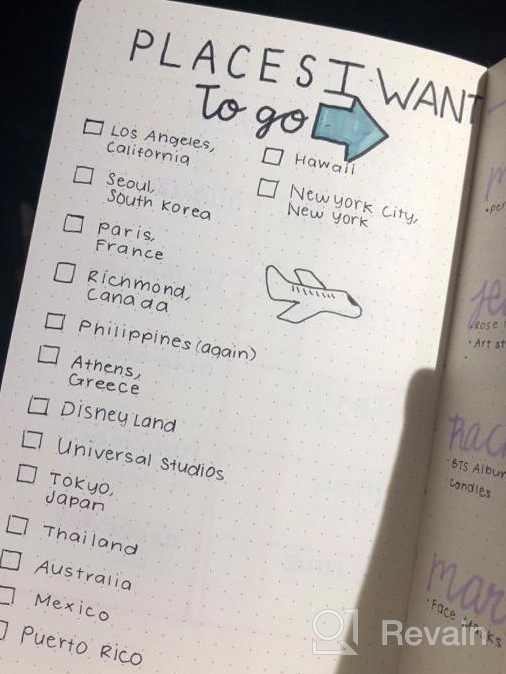 PLACES I WANT
To go
Los Angeles,
California
Seoul,
South Korea
Paris,
France
Richmond,
Canada
Philippines (again)
Athens,
Greece
Disney Land
Universal Studios
Tokyo,
Japan
Thailand
Australia
Mexico
Puerto Rico
Hawaii
New York City,
New York
BTS
candles
Face Masks
Revain